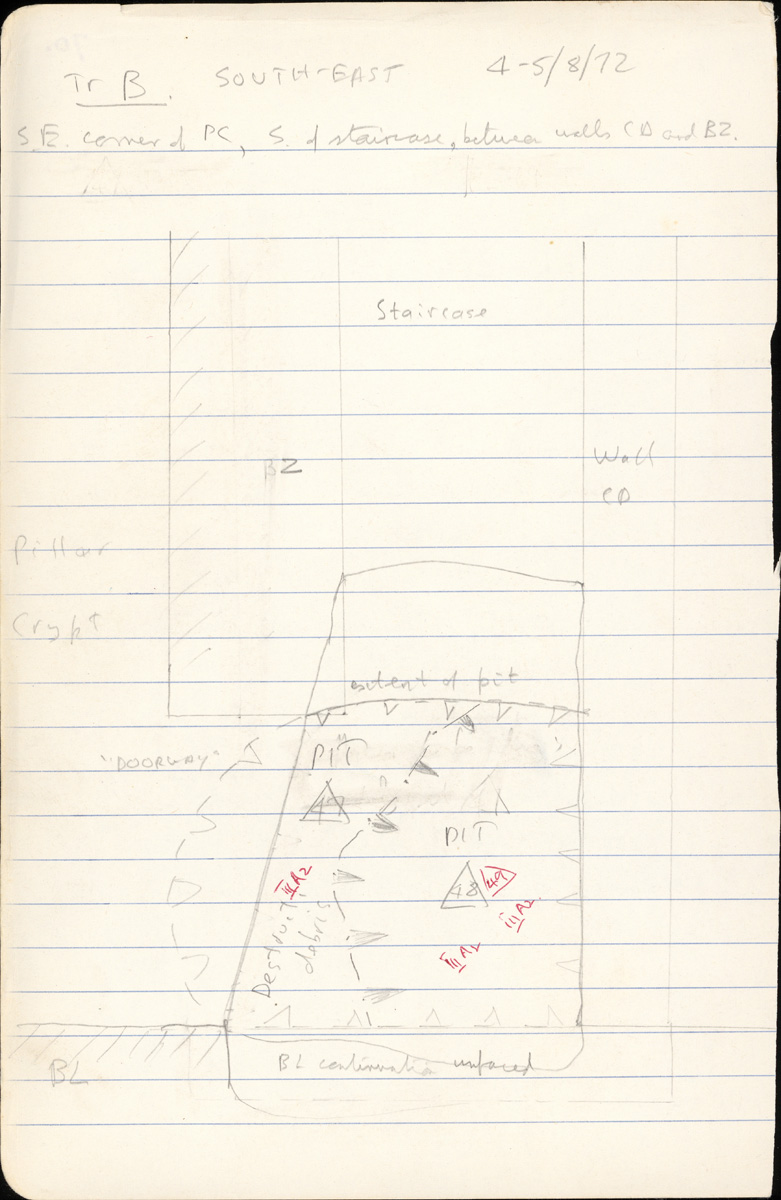 Tr B. SOUTH-EAST 4-5/8/72
S.E. corner of PC, S. of staircase, between walls CD and BZ.
Staircase
BZ
Wall
CD
Pillar
Crypt
extent of pit
"DOORWAY"
PIT
47
PIT
48
49
III A2
III A2
III A2
Destruct.
debris
BL
BL continuation unfaced